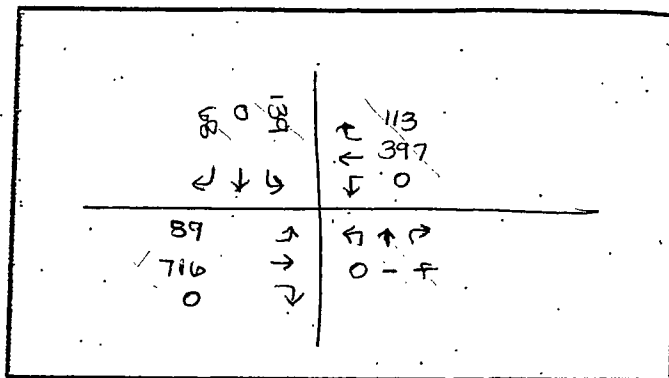 68 0 139
113
397
0
89
716
0
0 - +